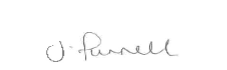 J. Purnell